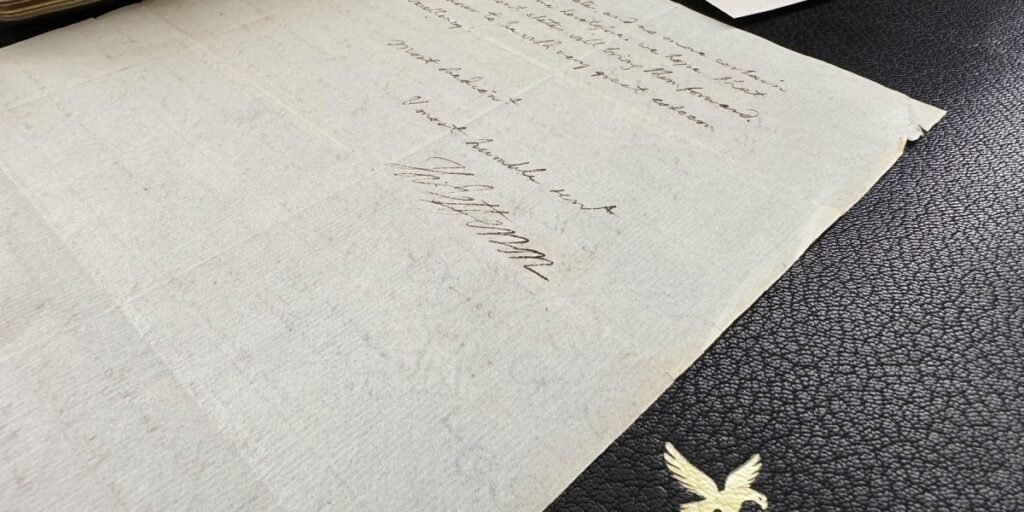 and no more certain
we hope that
will bring them forward.
to be with very great esteem
excellency's
most obedient
& most humble servt
Th: Jefferson